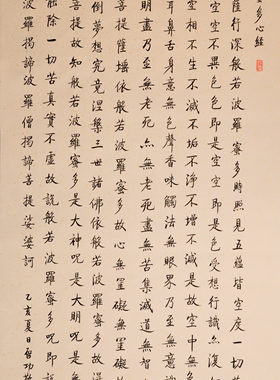 多心經
薩行深般若波羅蜜多時照見五蘊皆空度一切苦
空空不異色色即是空空即是色受想行識亦復如
空相不生不滅不垢不淨不增不減是故空中無色
耳鼻舌身意無色聲香味觸法無眼界乃至無意識
明盡乃至無老死亦無老死盡無苦集滅道無智亦
菩提薩埵依般若波羅蜜多故心無罣礙無罣礙故
倒夢想究竟涅槃三世諸佛依般若波羅蜜多故
菩提故知般若波羅蜜多是大神咒是大明咒是無
能除一切苦真實不虛故說般若波羅蜜多咒即說
諦波羅揭諦波羅僧揭諦菩提娑婆訶
乙亥夏日啓功敬